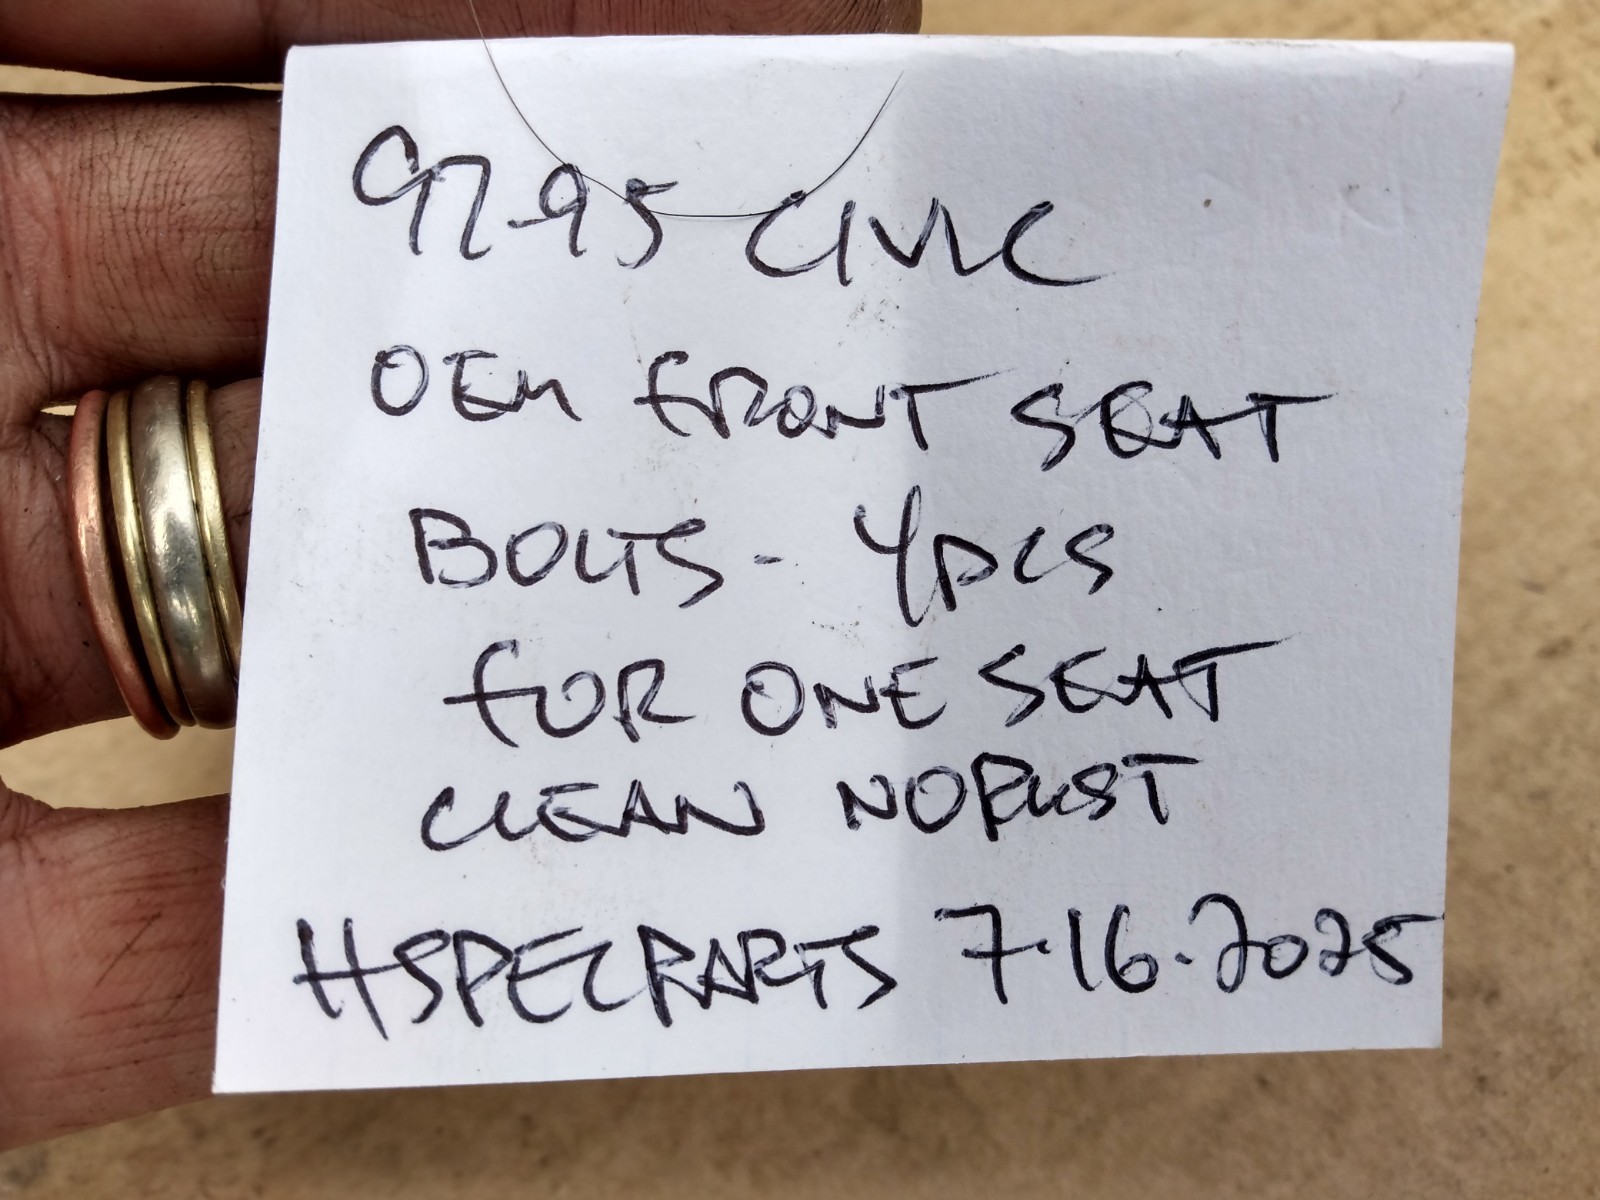 92-95 CIVIC
OEM FRONT SEAT
BOLTS - 4PCS
FOR ONE SEAT
CLEAN NO RUST
HSPECPARTS 7.16.2025